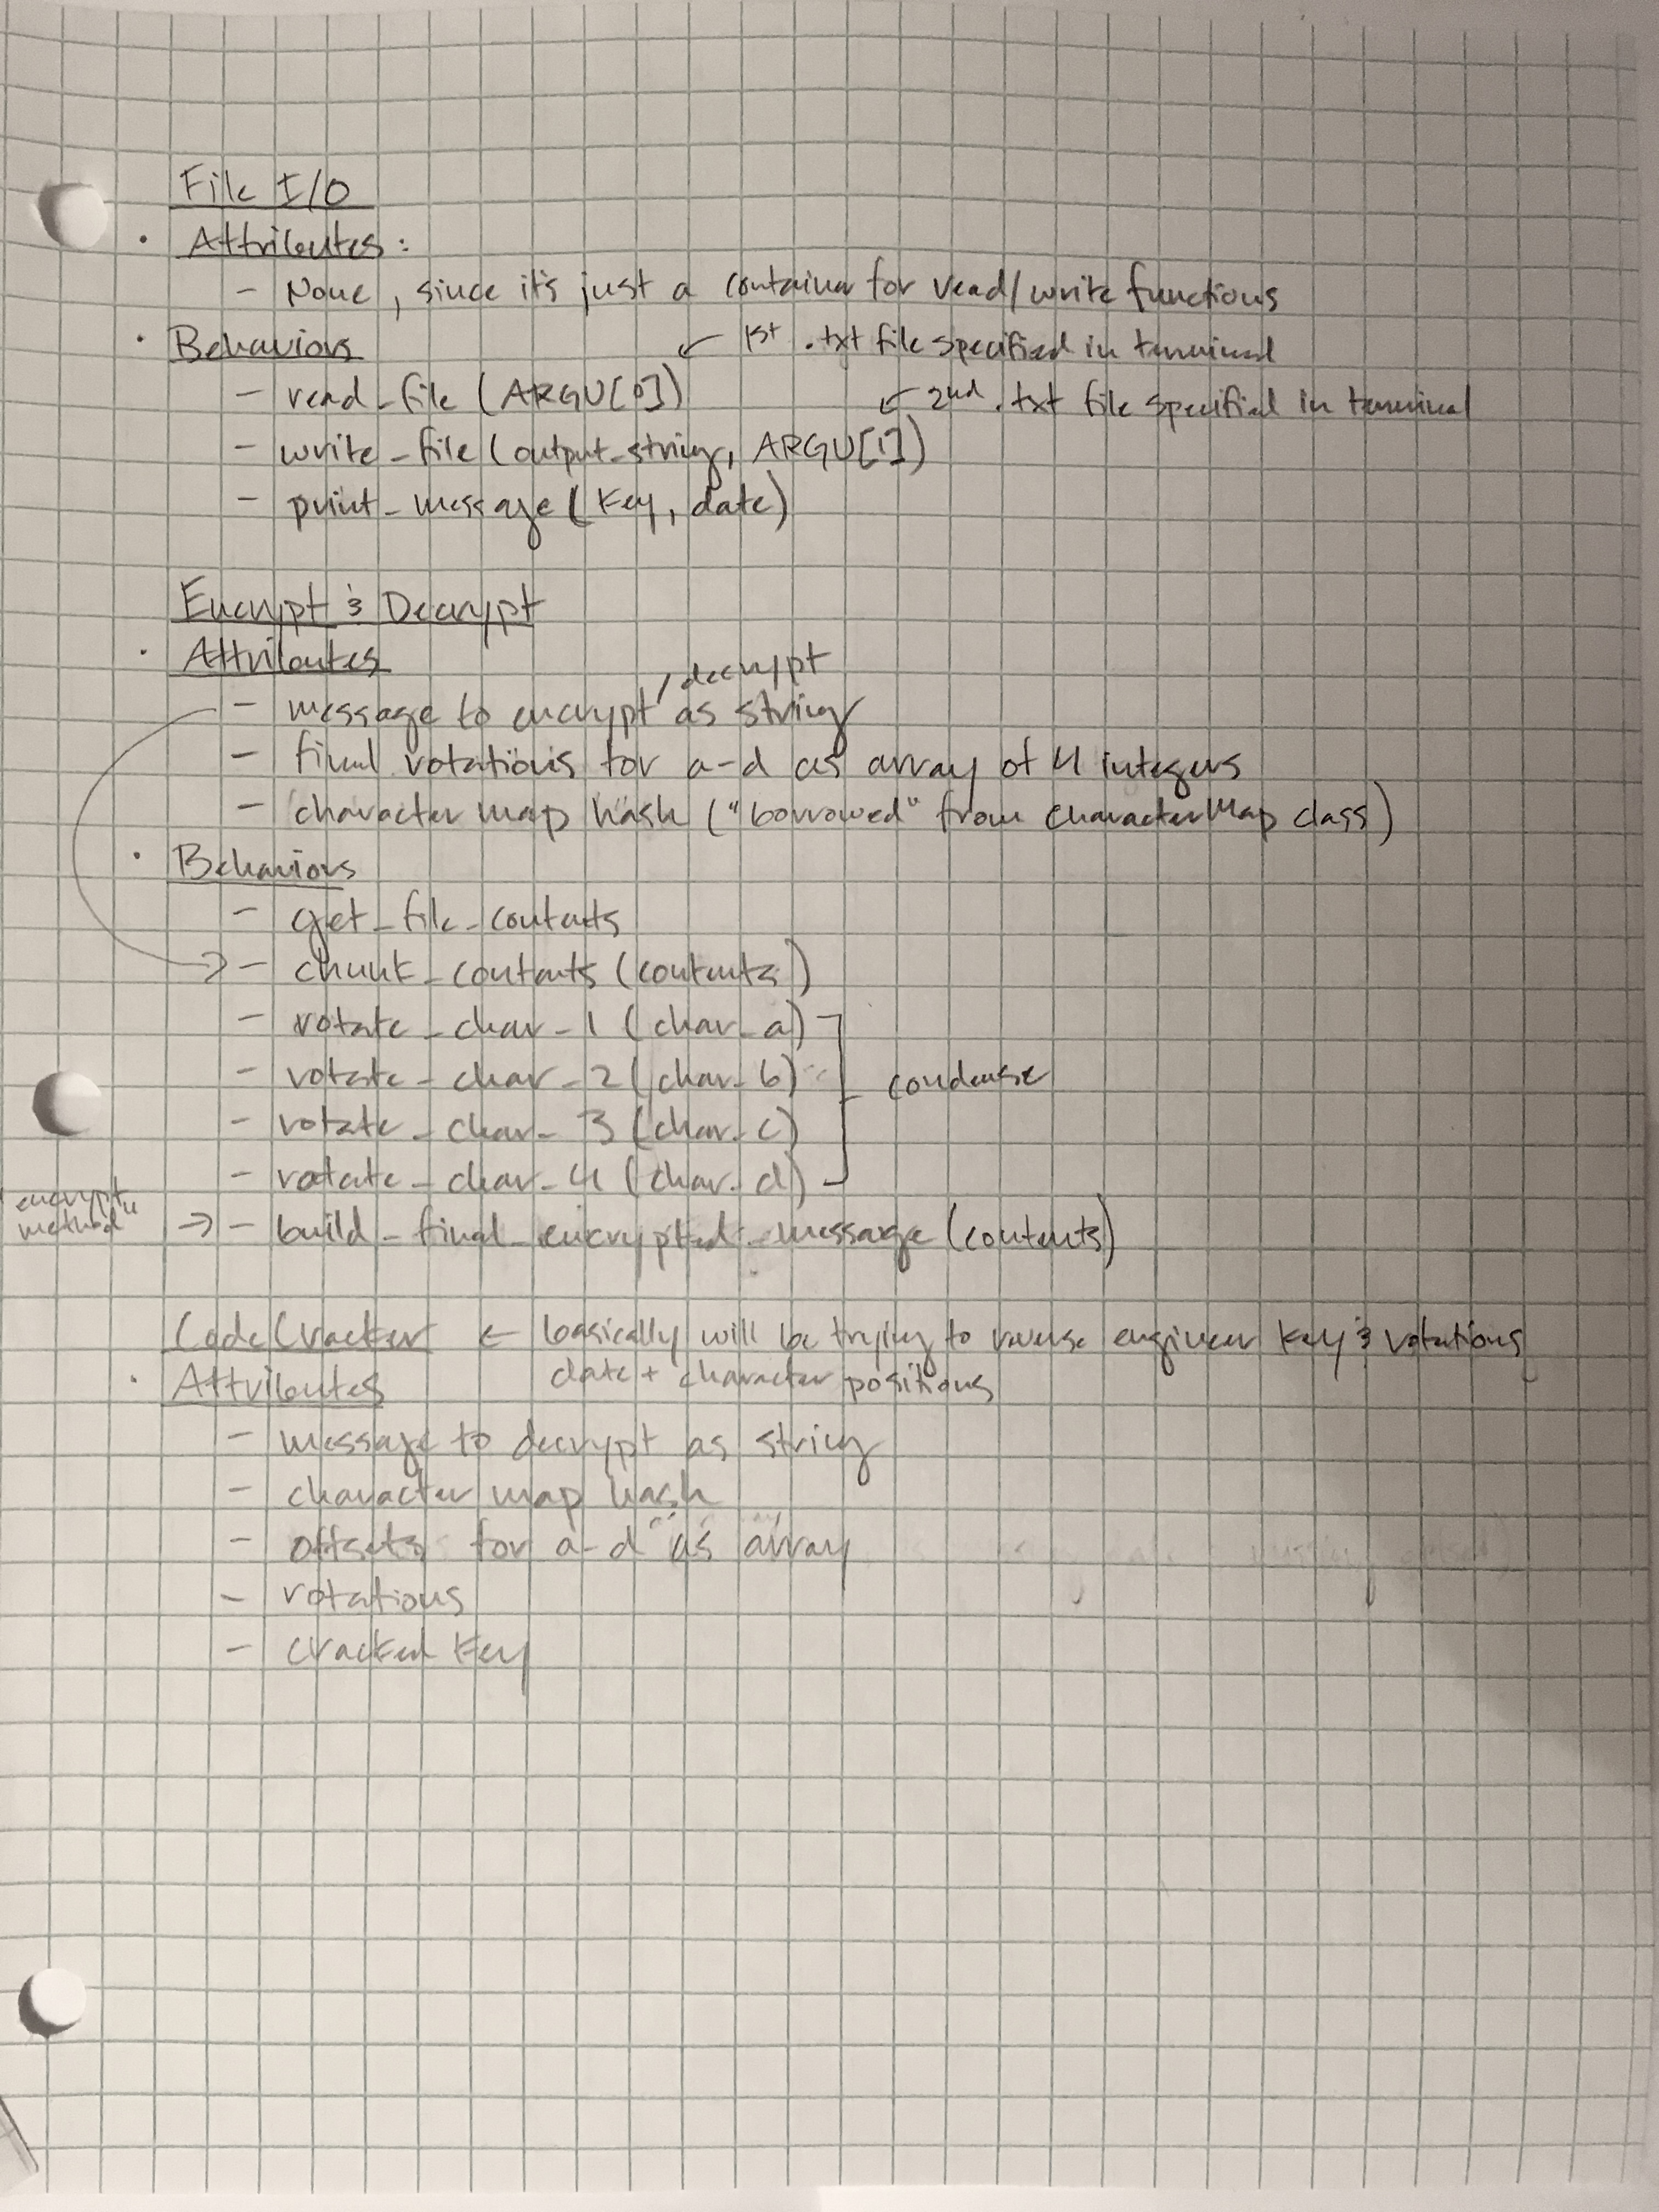 File I/O
· Attributes:
- None, since it's just a container for read/write functions
· Behaviors ← 1st .txt file specified in terminal
- read_file (ARGV[0]) ← 2nd .txt file specified in terminal
- write_file (output_string, ARGV[1])
- print_message (key, date)
Encrypt & Decrypt
· Attributes
/decrypt
- message to encrypt as string
- final rotations for a-d as array of 4 integers
- character map hash ("borrowed" from CharacterMap class)
· Behaviors
- get_file_contents
→ - chunk_contents (contents)
- rotate_char_1 (char_a)
- rotate_char_2 (char_b) condense
- rotate_char_3 (char_c)
- rotate_char_4 (char_d)
encrypt
method → - build_final_encrypted_message (contents)
CodeCracker ← basically will be trying to reverse engineer key & rotations
· Attributes date + character positions
- message to decrypt as string
- character map hash
- offsets for a-d as array
- rotations
- cracked key